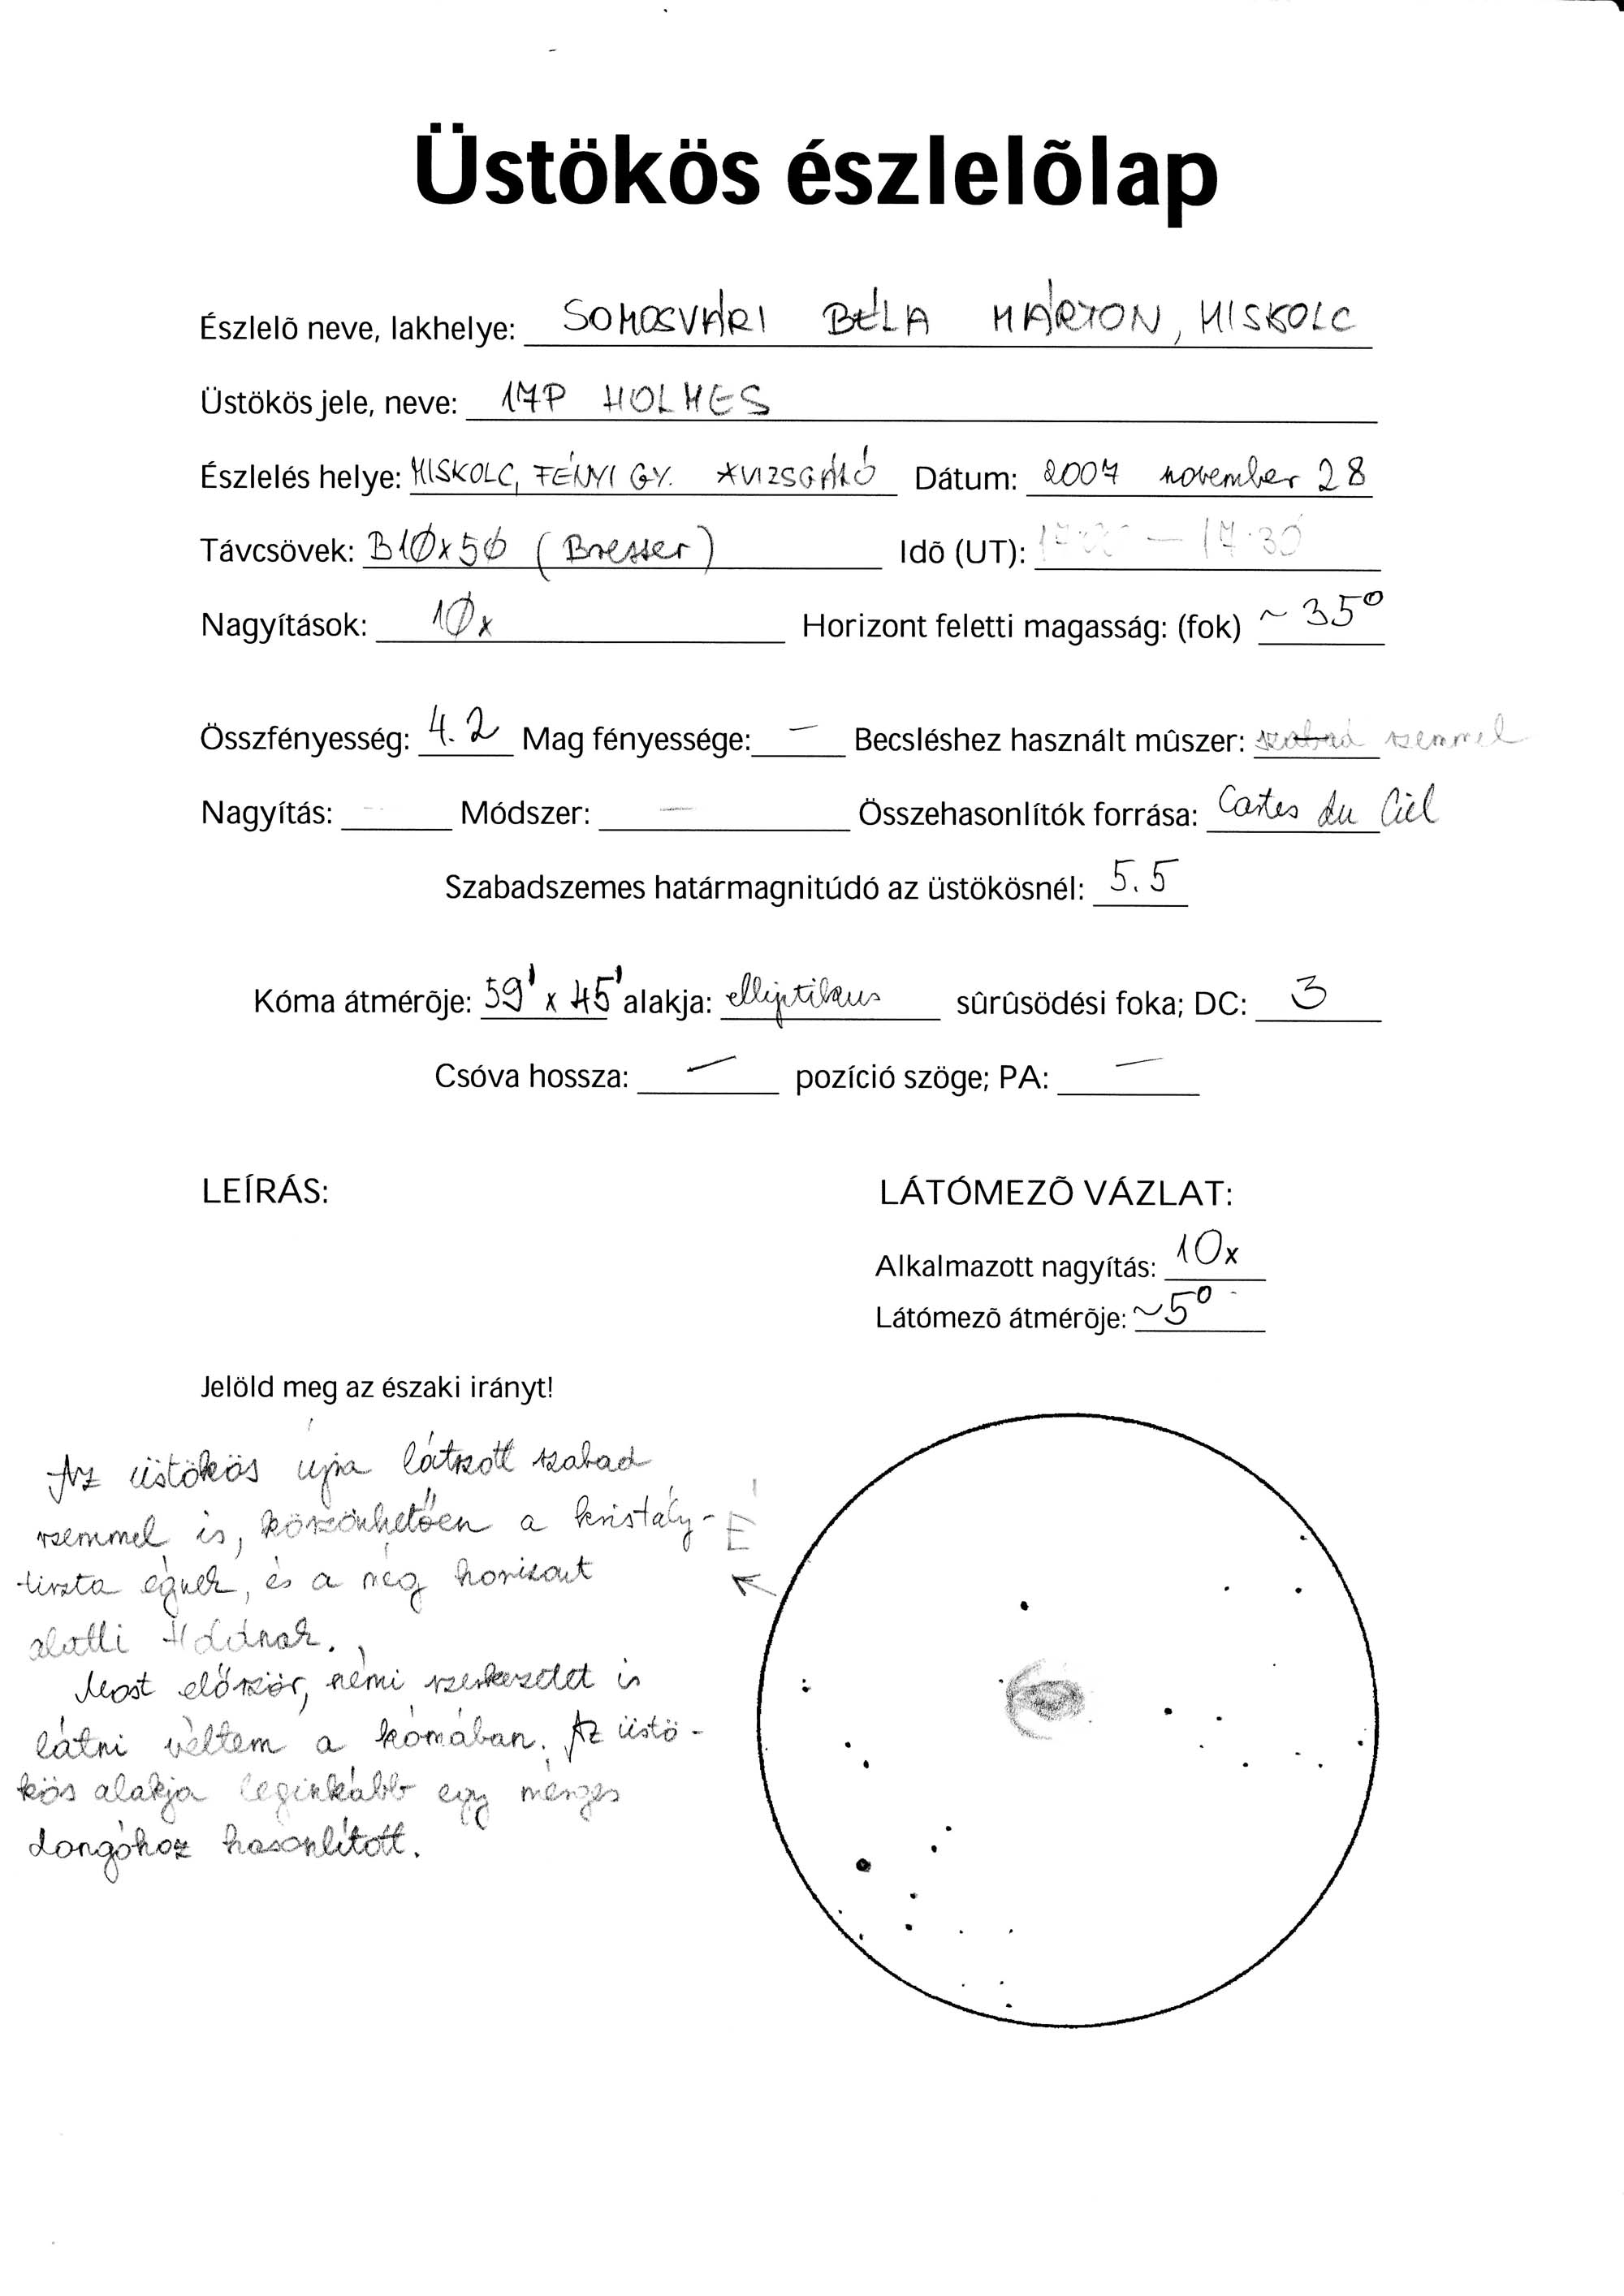 Üstökös észlelõlap
Észlelõ neve, lakhelye: SOMOSVÁRI BÉLA MÁRTON, MISKOLC
Üstökös jele, neve: 17P HOLMES
Észlelés helye: MISKOLC, FÉNYI GY. Dátum: 2007 november 28
Távcsövek: B10x50 (Bresser) Idõ (UT): — 17:30
Nagyítások: 10x Horizont feletti magasság: (fok) ~ 35°
Összfényesség: 4.2 Mag fényessége: — Becsléshez használt mûszer: szabad szemmel
Nagyítás: — Módszer: — Összehasonlítók forrása: Cartes du Ciel
Szabadszemes határmagnitúdó az üstökösnél: 5.5
Kóma átmérõje: 59' x 45' alakja: elliptikus sûrûsödési foka; DC: 3
Csóva hossza: — pozíció szöge; PA: —
LEÍRÁS:
LÁTÓMEZÕ VÁZLAT:
Alkalmazott nagyítás: 10x
Látómezõ átmérõje: ~5°
Jelöld meg az északi irányt!
Az üstökös újra látszott szabad
szemmel is, köszönhetően a kristály-
tiszta égnek, és a még horizont
alatti Holdnak.
Most először, némi szerkezetet is
látni véltem a kómában. Az üstö-
kös alakja leginkább egy mérges
dongóhoz hasonlított.
É